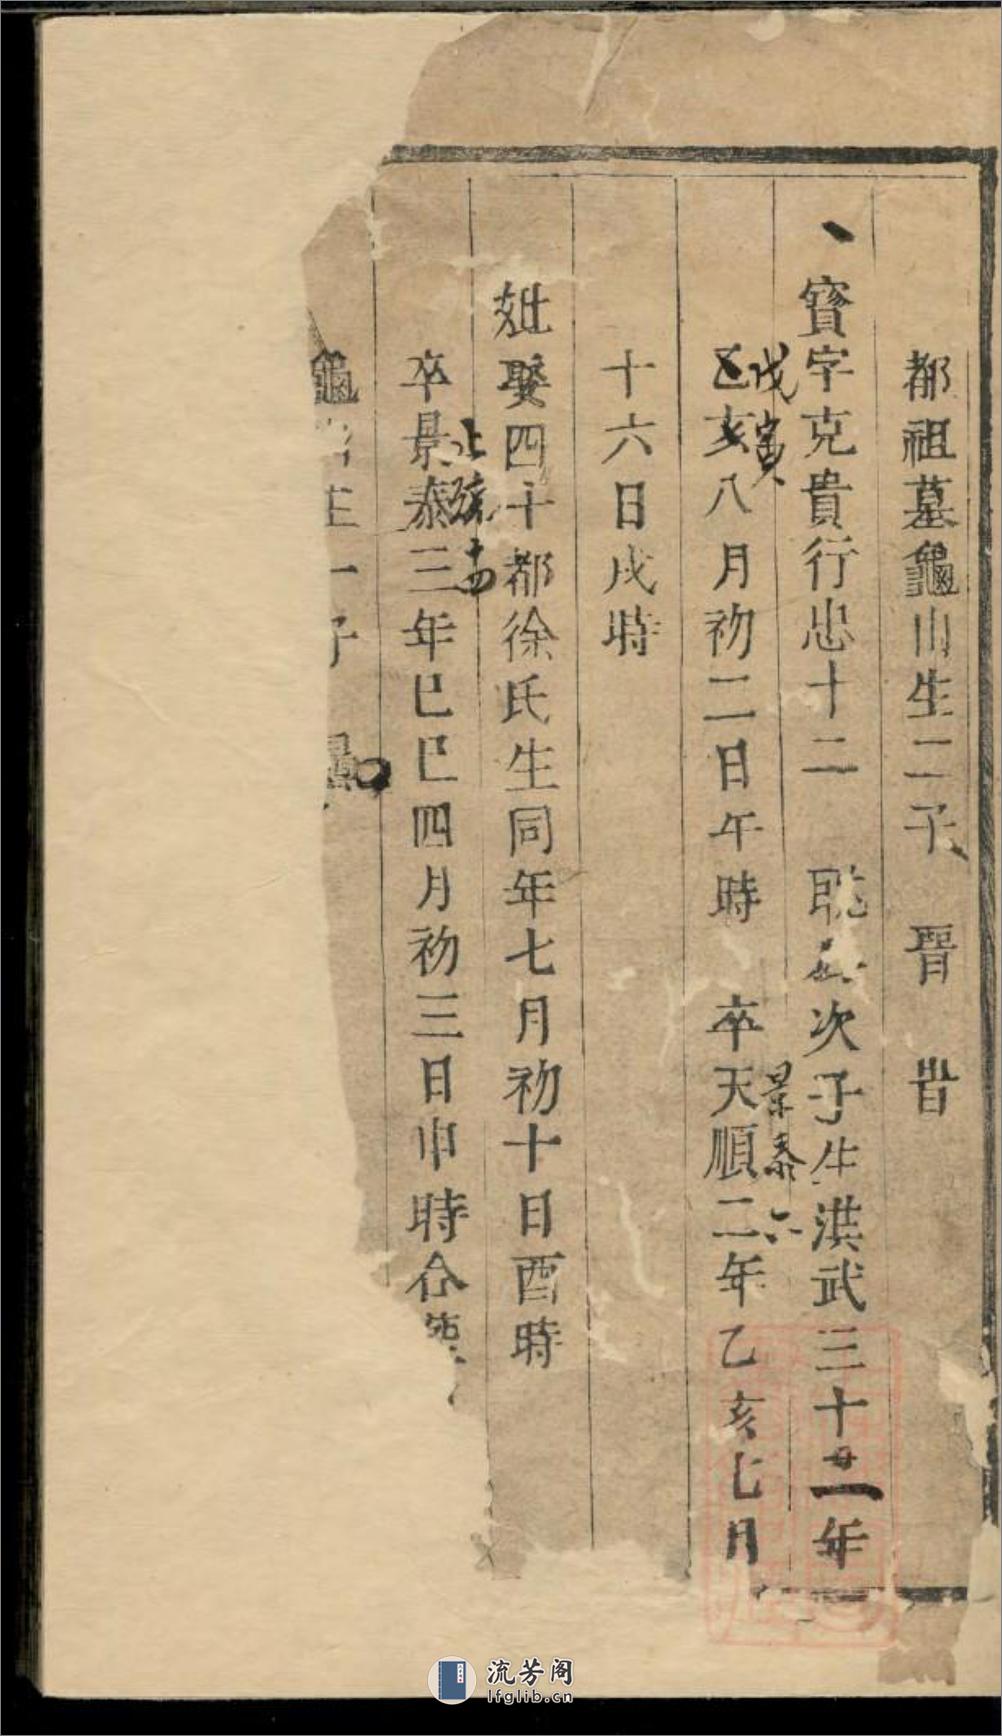 都祖墓龜山生二子 晋 昔
寶字克貴行忠十二 次子生洪武三十二年
戊寅 景泰六
乙亥八月初二日午時 卒天順二年乙亥七月
十六日戌時
妣娶四十都徐氏生同年七月初十日酉時
卒景泰三年巳巳四月初三日申時合
龜 生一子
流芳阁
lfglib.cn